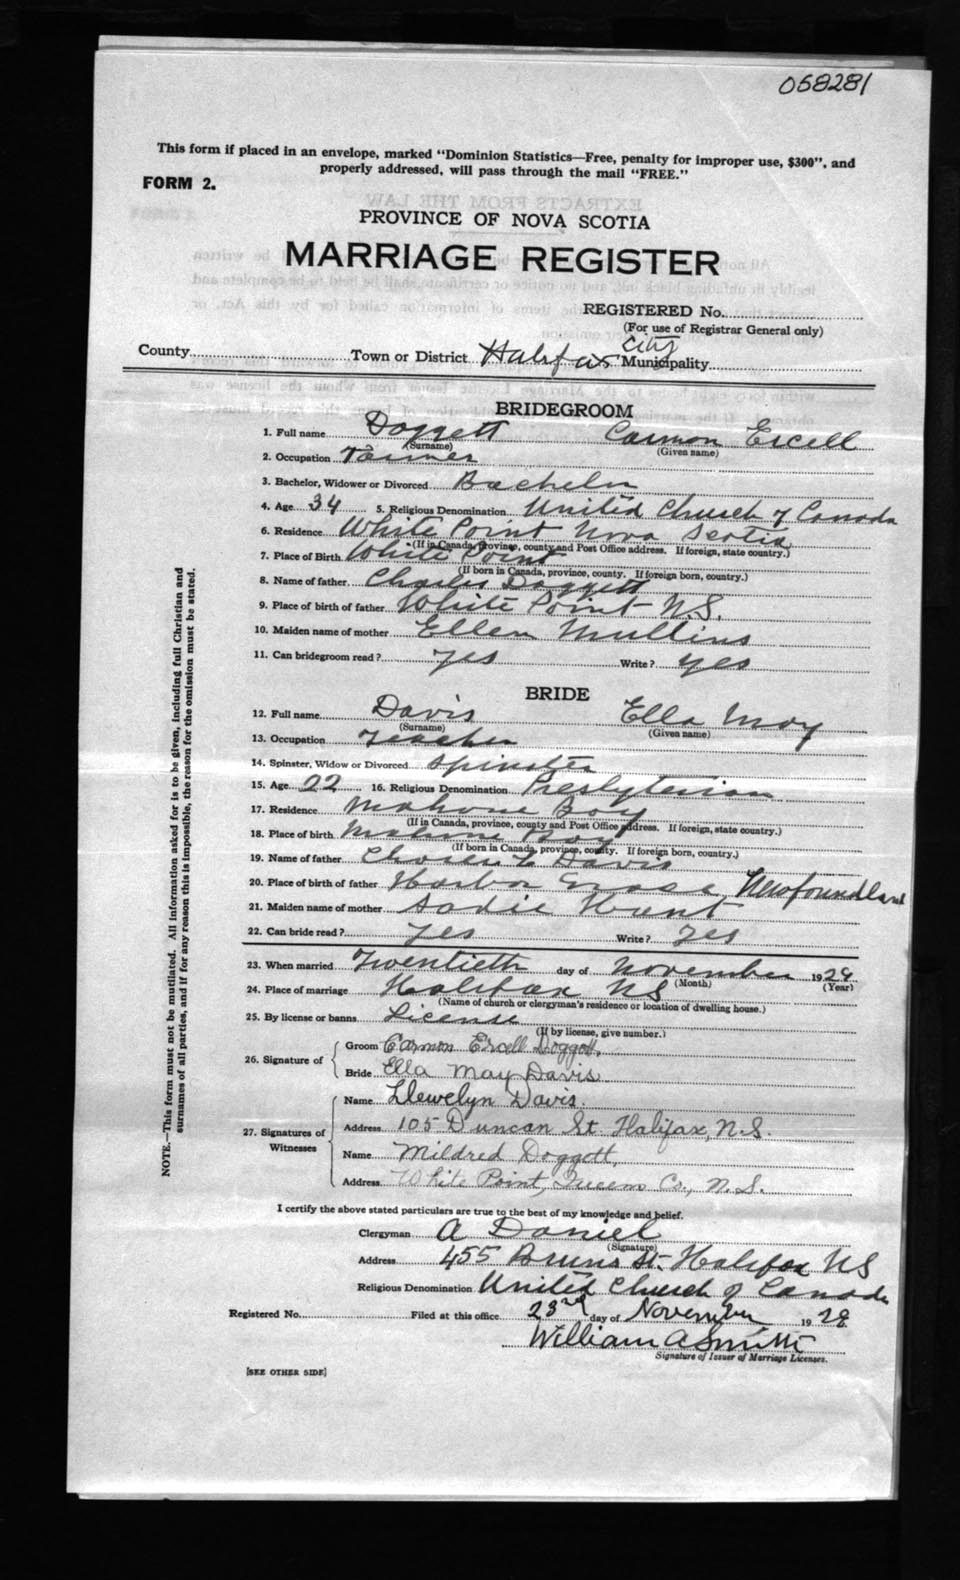 058281
This form if placed in an envelope, marked "Dominion Statistics—Free, penalty for improper use, $300", and
properly addressed, will pass through the mail "FREE."
FORM 2.
PROVINCE OF NOVA SCOTIA
MARRIAGE REGISTER
REGISTERED No.
(For use of Registrar General only)
County Town or District Halifax City Municipality
BRIDEGROOM
1. Full name Doggett Carmon Ercell
(Surname) (Given name)
2. Occupation Farmer
3. Bachelor, Widower or Divorced Bachelor
4. Age 34 5. Religious Denomination United Church of Canada
6. Residence White Point Nova Scotia
(If in Canada, province, county and Post Office address. If foreign, state country.)
7. Place of Birth White Point
(If born in Canada, province, county. If foreign born, country.)
8. Name of father Charles Doggett
9. Place of birth of father White Point N.S.
10. Maiden name of mother Ellen Mullins
11. Can bridegroom read? yes Write? yes
BRIDE
12. Full name Davis Ella May
(Surname) (Given name)
13. Occupation Teacher
14. Spinster, Widow or Divorced Spinster
15. Age 22 16. Religious Denomination Presbyterian
17. Residence Mahone Bay
(If in Canada, province, county and Post Office address. If foreign, state country.)
18. Place of birth Mahone Bay
(If born in Canada, province, county. If foreign born, country.)
19. Name of father L Davis
20. Place of birth of father Harbor Grace Newfoundland
21. Maiden name of mother Sadie Hunt
22. Can bride read? yes Write? yes
23. When married Twentieth day of November 1928
(Month) (Year)
24. Place of marriage Halifax NS
(Name of church or clergyman's residence or location of dwelling house.)
25. By license or banns License
(If by license, give number.)
26. Signature of Groom Carmon Ercell Doggett.
Bride Ella May Davis
27. Signatures of Witnesses Name Llewelyn Davis.
Address 105 Duncan St Halifax, N.S.
Name Mildred Doggett,
Address White Point, Queens Co., N.S.
I certify the above stated particulars are true to the best of my knowledge and belief.
Clergyman A Daniel
(Signature)
Address 455 Bruns St. Halifax NS
Religious Denomination United Church of Canada
Registered No. Filed at this office 23rd day of November 1928
William A Smith
Signature of Issuer of Marriage Licenses.
[SEE OTHER SIDE]
NOTE.—This form must not be mutilated. All information asked for is to be given, including full Christian and
surnames of all parties, and if for any reason this is impossible, the reason for the omission must be stated.